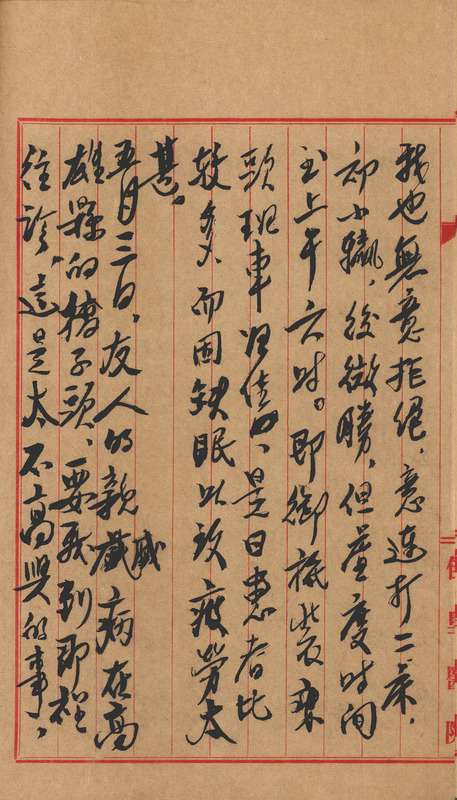 我也無意拒絕,意連打二
小贏,後微勝,但虛度时间
至上午六时。即御抵此衣乘
頭班車归佳里、是日患者比
較多而因缺眠以致疲勞太
甚。
五月三日,友人的親戚病在高
雄縣的橋子頭,要我到那裡
往診,這是太不高興的事,